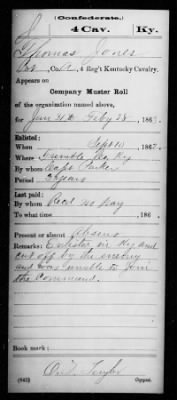 (Confederate.)
J 4 Cav. Ky.
Thomas Jones
Co. 4 Reg't Kentucky Cavalry.
Appears on
Company Muster Roll
of the organization named above,
for Jan & Feby 28, 186
Enlisted:
When Sept 10, 186
Where Trimble Co Ky
By whom Capt Parker
Period 3 years
Last paid:
By whom Recd no pay
To what time , 186 .
Present or absent Absent
Remarks: Enlisted in Ky and
cut off by the enemy
and was unable to join
the Command.
Book mark:
Taylor
(642) Copyist.